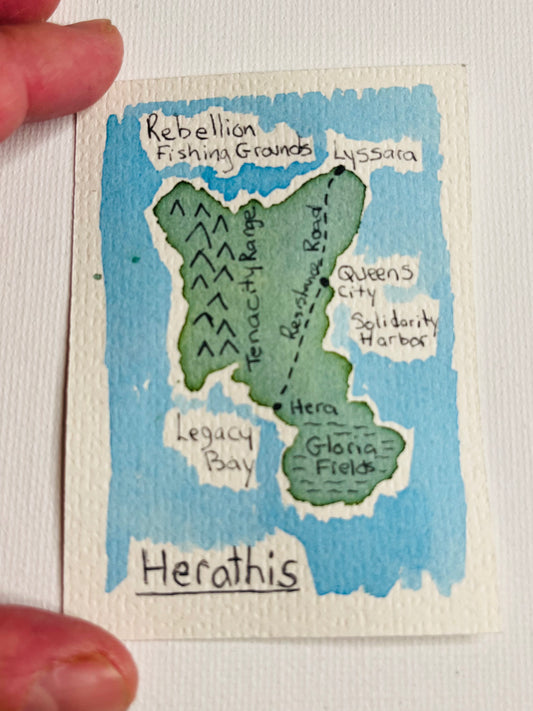 Rebellion
Fishing Grounds
Lyssara
Tenacity Range
Resistance Road
Queens
City
Solidarity
Harbor
Hera
Legacy
Bay
Gloria
Fields
Herathis